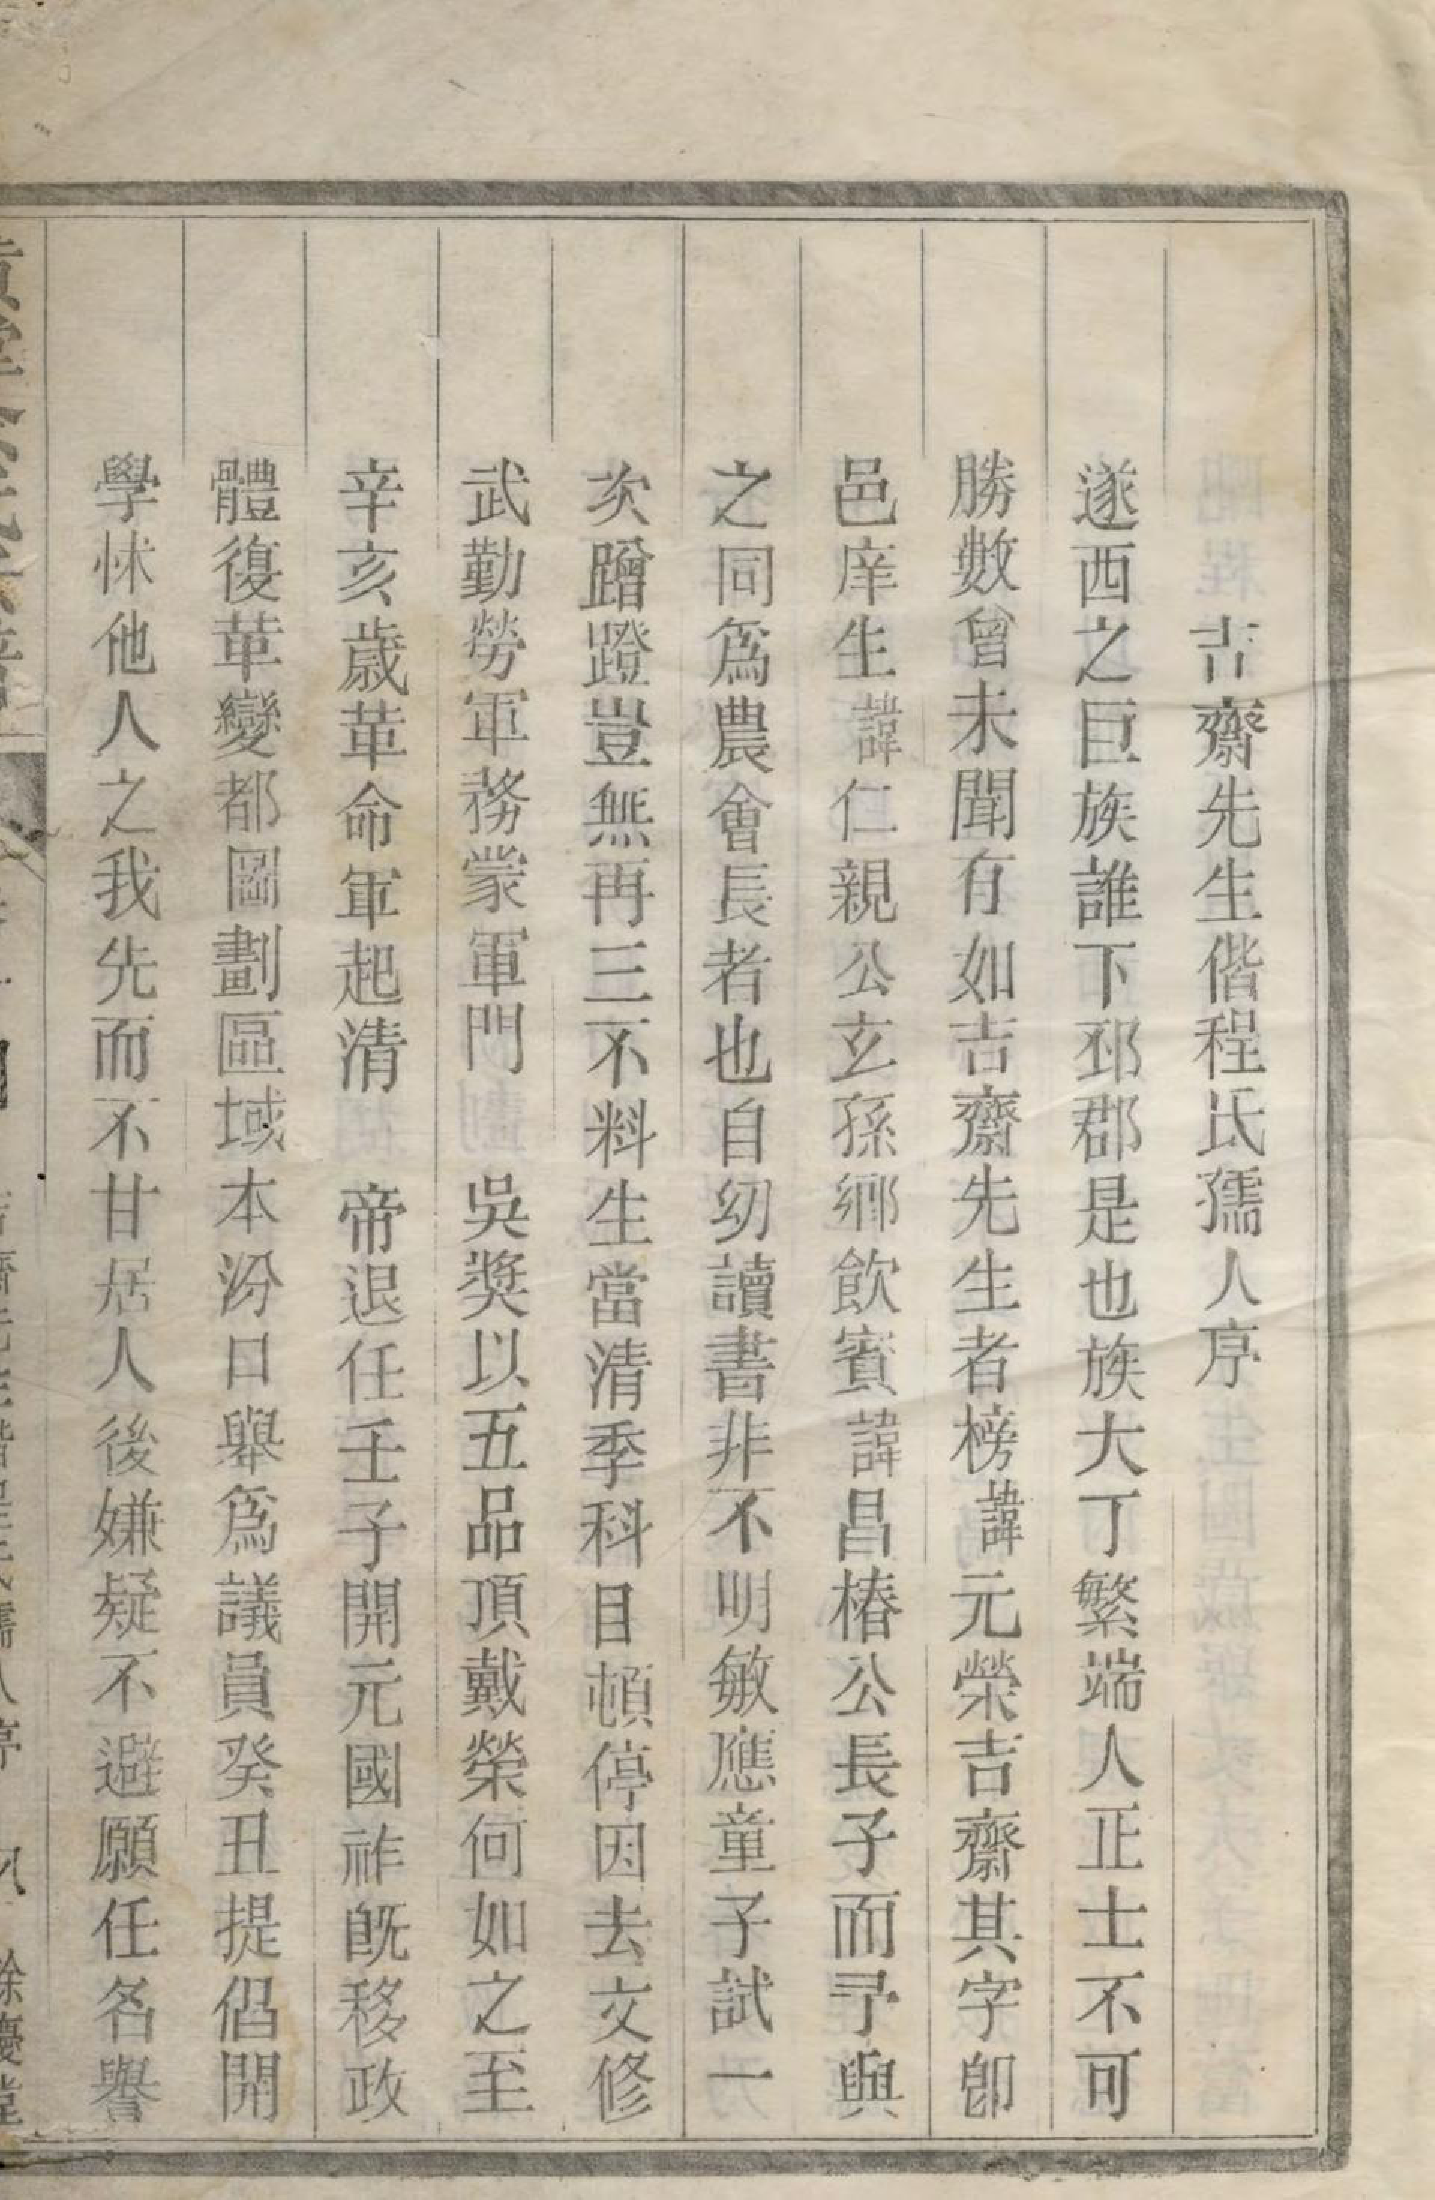 吉齋先生偕程氏孺人序
遂西之巨族誰下邳郡是也族大丁繁端人正士不可
勝數曾未聞有如吉齋先生者榜諱元榮吉齋其字卽
邑庠生諱仁親公玄孫鄉飲賓諱昌椿公長子而予與
之同爲農會長者也自幼讀書非不明敏應童子試一
次蹭蹬豈無再三不料生當清季科目頓停因去文修
武勤勞軍務蒙軍門 吳奬以五品頂戴榮何如之至
辛亥歲革命軍起清 帝退任壬子開元國祚旣移政
體復革變都圖劃區域本汾口舉爲議員癸丑提倡開
學怵他人之我先而不甘居人後嫌疑不避願任名譽
吉齋先生偕程氏孺人序 餘慶堂